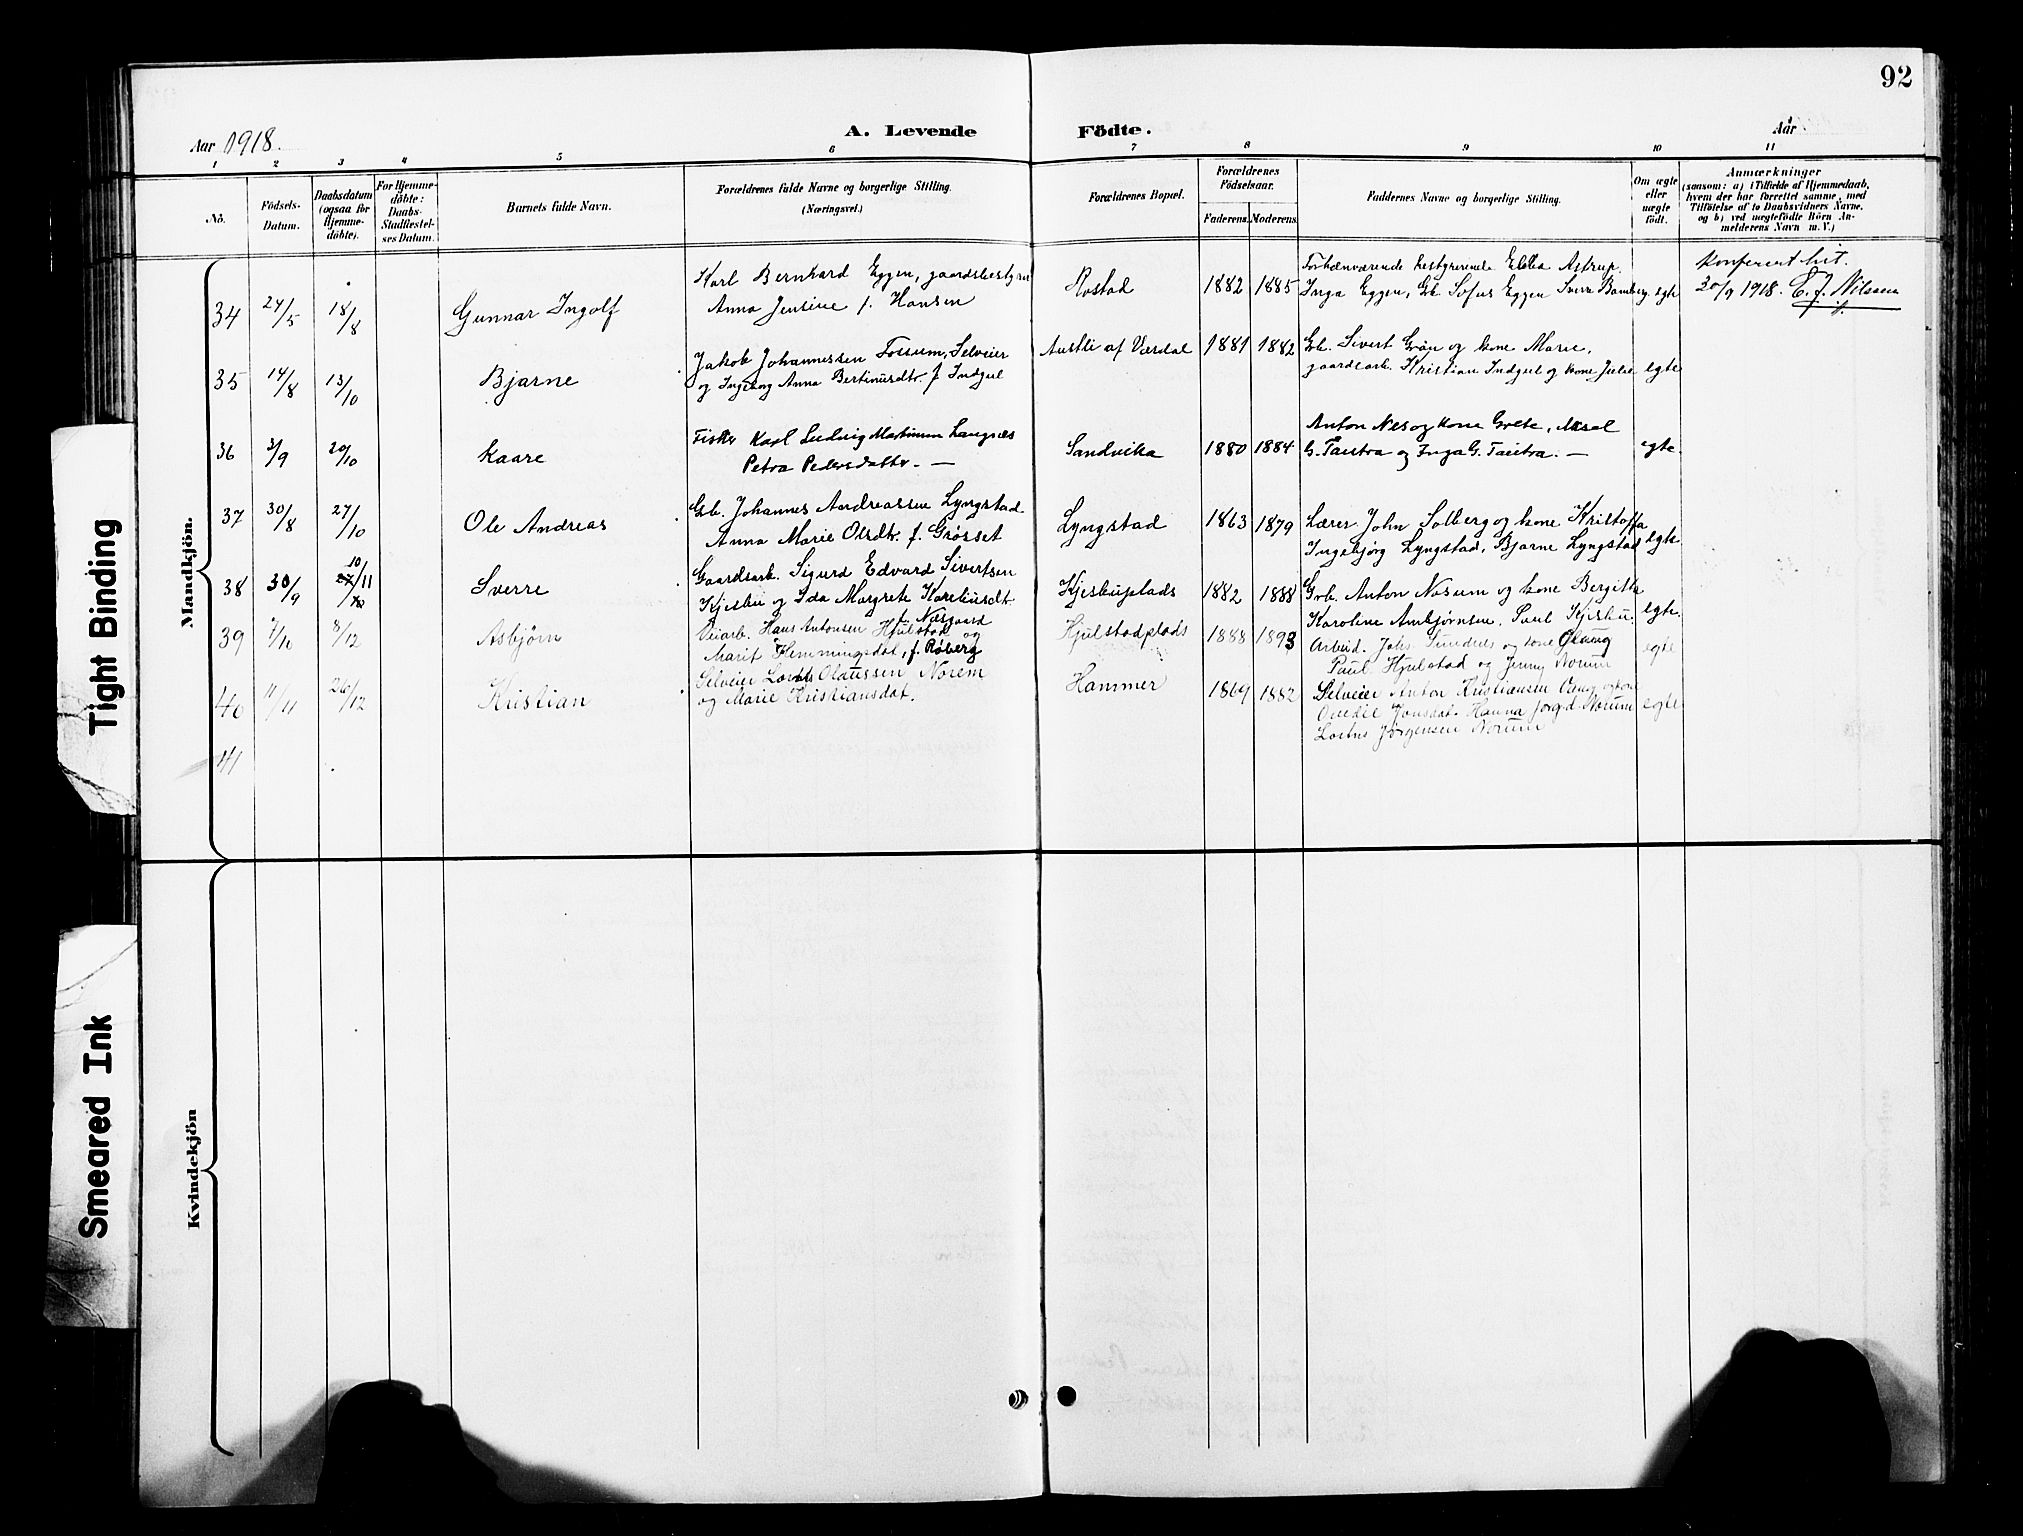 92
Aar 1918.
A. Levende Födte.
Aar
1 2 3 4 5 6 7 8 9 10 11
Nô.
Födsels-
Datum.
Daabsdatum
(ogsaa for
Hjemme-
döbte).
For Hjemme-
döbte:
Daabs-
Stadfestel-
ses Datum.
Barnets fulde Navn.
Forældrenes fulde Navne og borgerlige Stilling.
(Næringsvei.)
Forældrenes Bopæl.
Forældrenes
Födselsaar.
Faderens. Moderens.
Faddernes Navne og borgerlige Stilling.
Om ægte
eller
uægte
födt.
Anmærkninger
(saasom: a) i Tilfælde af Hjemmedaab,
hvem der har forrettet samme, med
Tilföielse af to Daabsvidners Navne,
og b) ved uægtefödte Börn An-
melderens Navn m. V.)
Mandkjön.
34 24/5 18/8 Gunnar Ingolf
Karl Bernhard Eggen, gaardsbestyrer
Anna Jensine f. Hansen
Rostad 1882 1885
Forhenværende bestyrerinde Ebba Astrup.
Inga Eggen, Gb. Sofus Eggen Sverre Bamberg. egte
Konferent hit.
30/9 1918. E. J. Nilssen
35 14/8 13/10 Bjarne
Jakob Johannessen Fossum, Selveier
og Ingeborg Anna Bertinusdtr. f. Indgul
Austli af Værdal 1881 1882
Gb. Sivert Grøn og kone Marie,
gaardearb. Kristian Indgul og kone Julie egte
36 3/9 20/10 Kaare
Fisker Karl Ludvig Martinum Langnes
Petra Pedersdatter. —
Sandvika 1880 1884
Anton Nes og kone Grete, Aksel
G. Tautra og Inga G. Tautra. — egte.
37 30/8 27/10 Ole Andreas
Gb. Johannes Andreassen Lyngstad
Anna Marie Olsdtr. f. Grøsset
Lyngstad 1863 1879
Lærer John Solberg og kone Kristoffa
Ingebjørg Lyngstad, Bjarne Lyngstad egte.
38 30/9 10/11 Sverre
Gaardsarb. Sigurd Edvard Sivertsen
Kjesbu og Ida Margrete Kareliusdtr.
f. Nesgaard
Kjesbuplads 1882 1888
Grb. Anton Nossum og kone Bergitte
Karoline Ambjørnsen. Paul Kjesbu. egte.
39 7/10 8/12 Asbjørn
Veiarb. Hans Antonsen Hjulstad og
Marit Hemmingsdat. f. Røberg
Hjulstadplads 1888 1893
Arbeid. Johs. Sundnes og kone Olaug
Paul Hjulstad og Jenny Norum egte
40 11/11 26/12 Kristian
Selveier Olaussen Norem
og Marie Kristiansdat.
Hammer 1869 1882
Selveier Anton Kristiansen og kone
Jonsdat. Hanna Jørg.d. Norum
Jørgensen Norum egte
41
Kvindekjön
Tight Binding
Smeared Ink